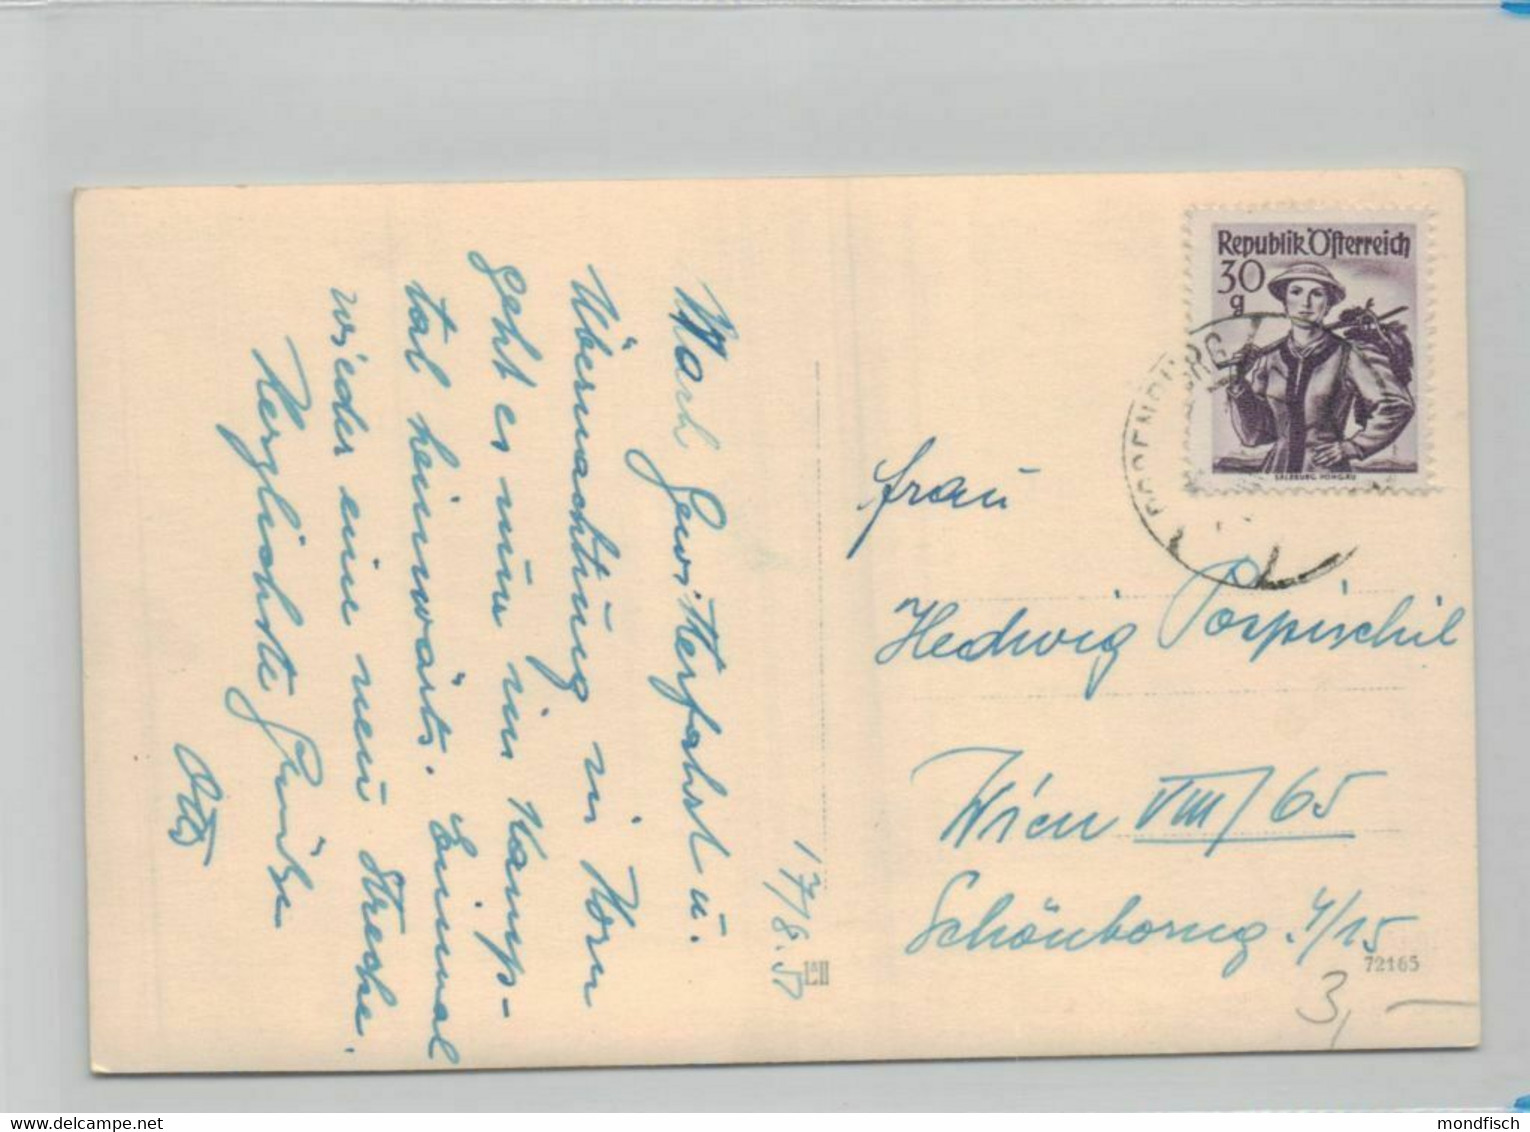 Nach Gewitterfahrt u.
Übernachtung in Horn
geht es nun im Kamp-
tal heimwärts. Einmal
wieder eine neue Strecke.
Herzlichste Grüße
Otto
17/8.5
LH
Republik Österreich
30
g
SALZBURG, PONGAU
ROSENBURG
Frau
Hedwig Pospischil
Wien VIII/65
Schönborng. 4/15
72165
3,-
mondfisch